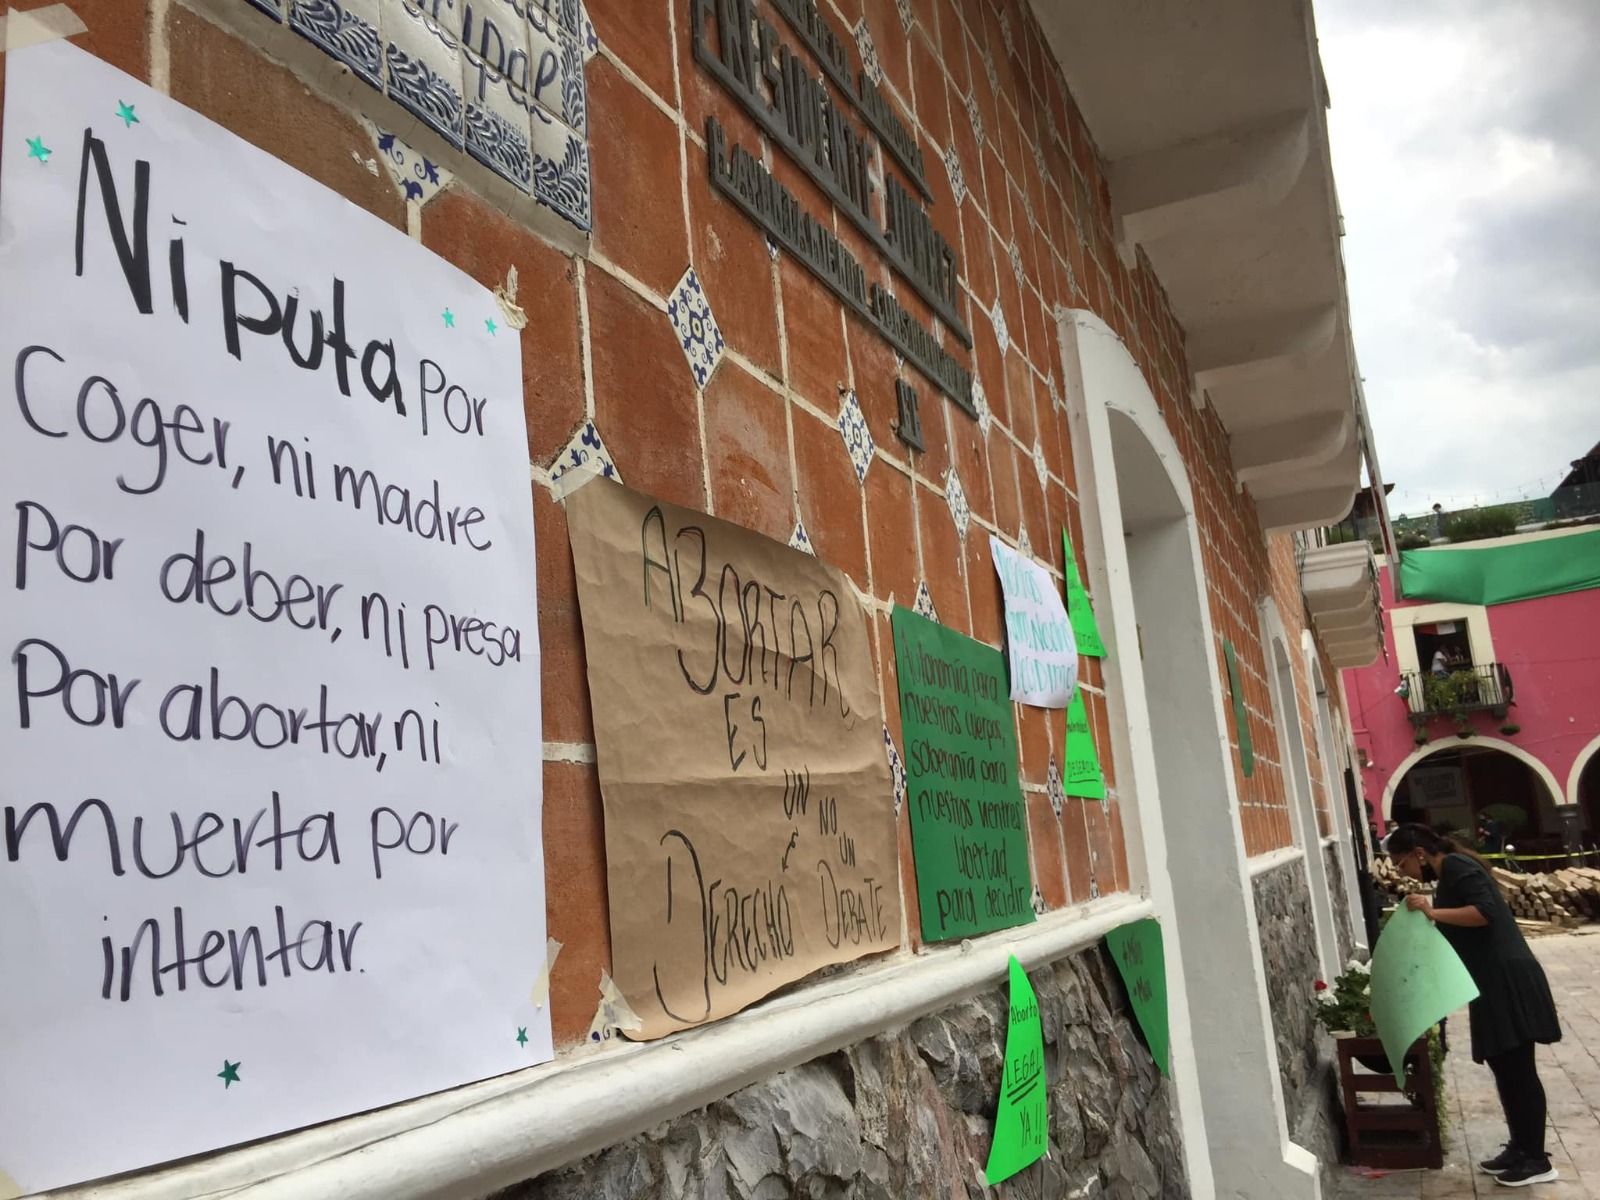 Ni puta por
Coger, ni madre
Por deber, ni presa
Por abortar, ni
muerta por
intentar.
PRESIDENTE JUAREZ
ABORTAR
ES
UN NO
UN
DERECHO DEBATE
Autonomía para
nuestros cuerpos,
soberanía para
nuestros vientres
libertad
para decidir.
Decidimos
DESEADA
Aborto
LEGAL
YA!!